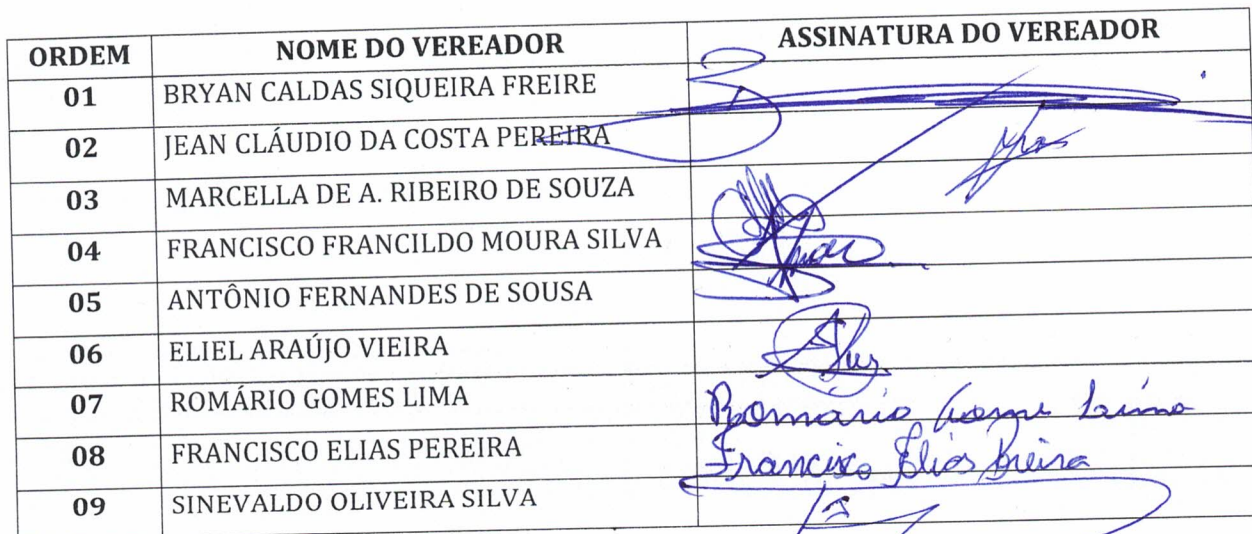 ORDEM NOME DO VEREADOR ASSINATURA DO VEREADOR
01 BRYAN CALDAS SIQUEIRA FREIRE
02 JEAN CLÁUDIO DA COSTA PEREIRA
03 MARCELLA DE A. RIBEIRO DE SOUZA
04 FRANCISCO FRANCILDO MOURA SILVA
05 ANTÔNIO FERNANDES DE SOUSA
06 ELIEL ARAÚJO VIEIRA
07 ROMÁRIO GOMES LIMA Romário Gome Lima
08 FRANCISCO ELIAS PEREIRA Francisco Elias
09 SINEVALDO OLIVEIRA SILVA